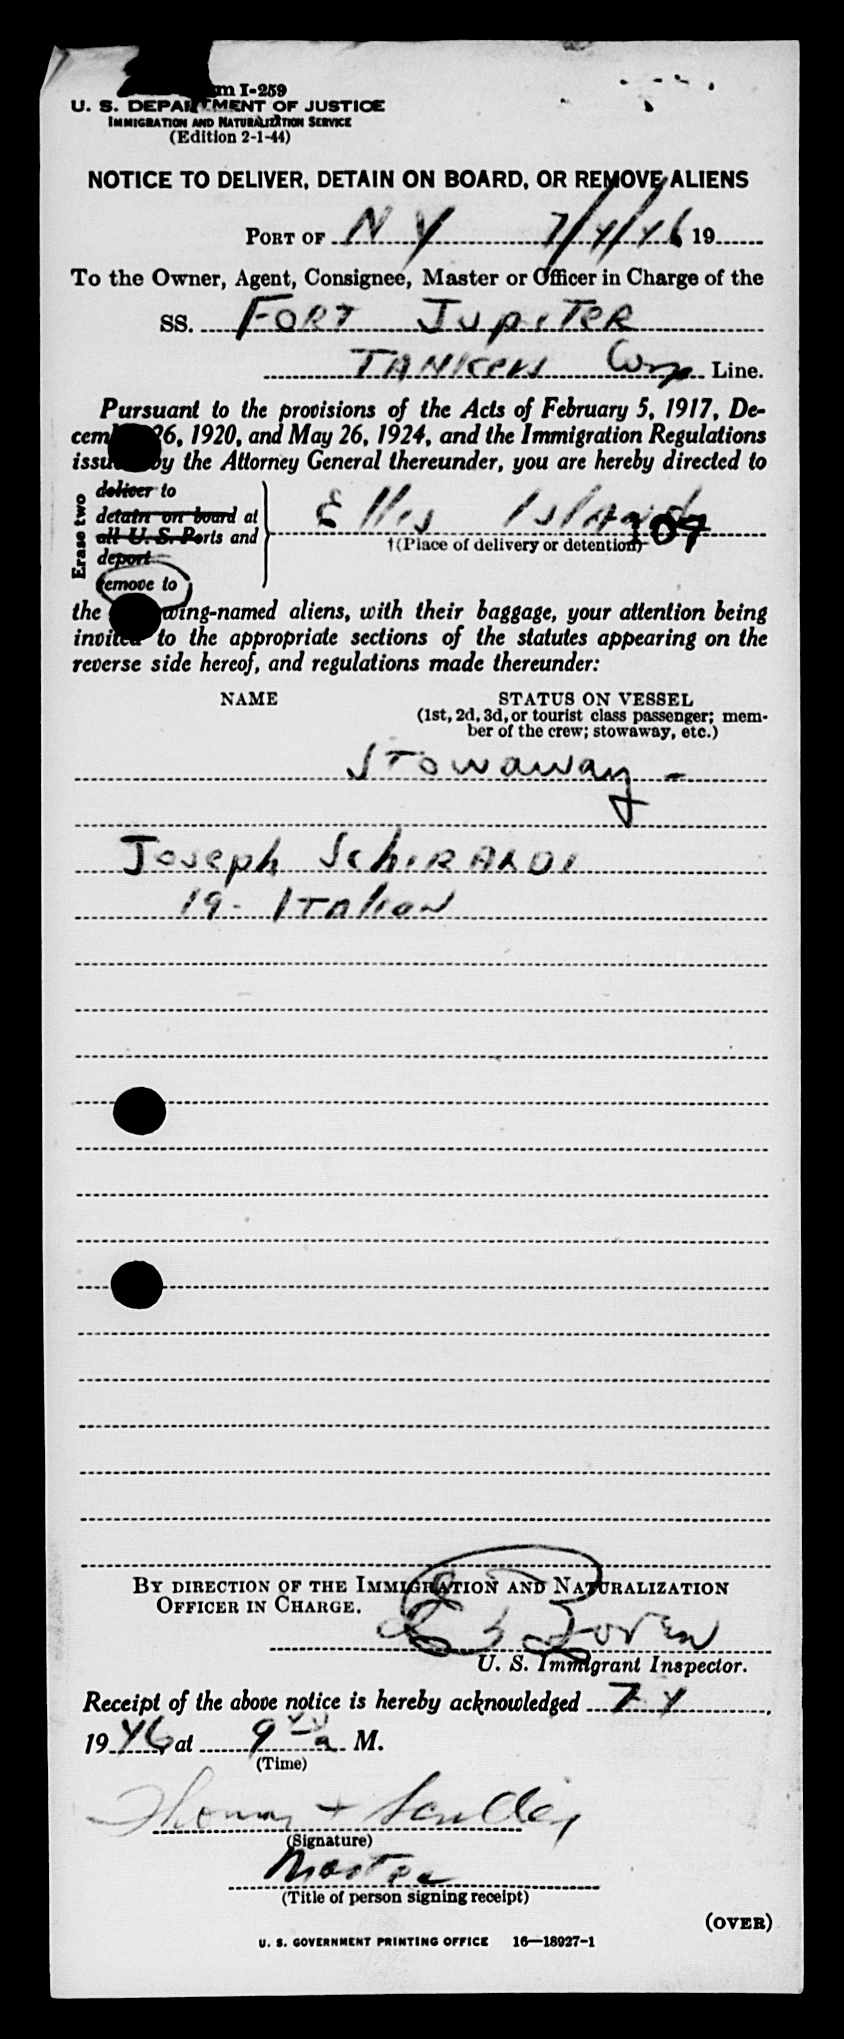 m I-259
U. S. DEPARTMENT OF JUSTICE
IMMIGRATION AND NATURALIZATION SERVICE
(Edition 2-1-44)
NOTICE TO DELIVER, DETAIN ON BOARD, OR REMOVE ALIENS
PORT OF N Y 7/4/46 19
To the Owner, Agent, Consignee, Master or Officer in Charge of the
SS. FORT JUPITER
TANKER Corp Line.
Pursuant to the provisions of the Acts of February 5, 1917, De-
cem 26, 1920, and May 26, 1924, and the Immigration Regulations
issued by the Attorney General thereunder, you are hereby directed to
Erase two
deliver to
detain on board at
all U. S. Ports and
deport
remove to
Ellis Island 107
†(Place of delivery or detention)
the wing-named aliens, with their baggage, your attention being
invited to the appropriate sections of the statutes appearing on the
reverse side hereof, and regulations made thereunder:
NAME STATUS ON VESSEL
(1st, 2d, 3d, or tourist class passenger; mem-
ber of the crew; stowaway, etc.)
Stowaway -
Joseph SCHIRALDI
19 - ITALIAN
BY DIRECTION OF THE IMMIGRATION AND NATURALIZATION
OFFICER IN CHARGE.
U. S. Immigrant Inspector.
Receipt of the above notice is hereby acknowledged 7 4,
1946, at 9 a M.
(Time)
(Signature)
Master
(Title of person signing receipt)
(OVER)
U. S. GOVERNMENT PRINTING OFFICE 16—18927-1